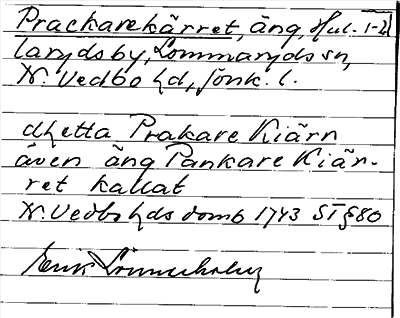 Prackarekärret, äng, Hul. 1-2
larydsby, Lommaryds sn,
N. Vedbo hd, Jönk. l.
dhetta Prakare Kiärn
även äng Pankare Kiär-
ret kallat
N. Vedbo hds domb 1743 ST § 80